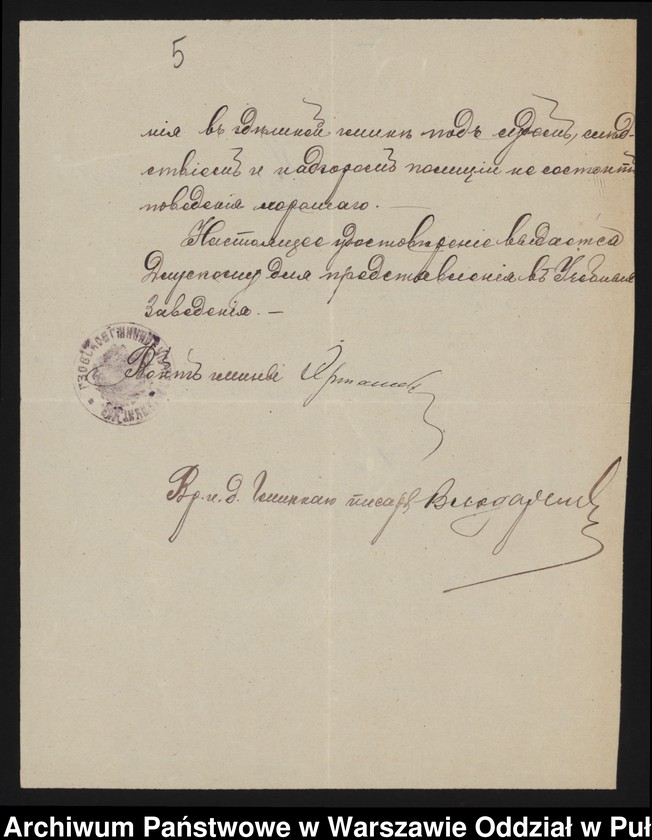 5
нія въ здѣшней гминѣ подъ судомъ, слѣд-
ствіемъ и надзоромъ полиціи не состоитъ
поведенія хорошаго. —
Настоящее удостовѣреніе выдается
для представленія въ Учебныя
Заведенія. —
ГЗОВСКОЕ ГМИННОЕ
Войтъ гмины
Вр. и. д. Гминнаго писаря
Archiwum Państwowe w Warszawie Oddział w Puł